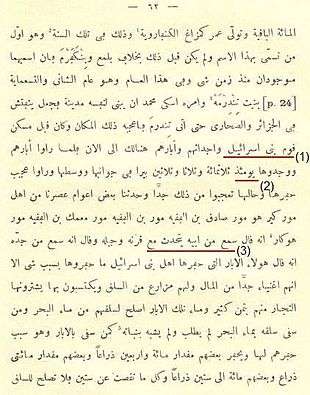 — ٦٢ —
المائة الباقية وتولّى عمر كنزاغ الكنباروية وذلك فى تلك السنة وهو اوّل
من تسمّى بهذا الاسم ولم يكن قبل ذلك بخلاف بلمع وبنكفرم بان اسميهما
موجودان منذ زمن شى وفى هذا العام وهو عام الثانى والتسعماية
[p. 24] بنيت تندرمة وامره اسكى محمد ان يبنى لنفسه مدينة فجعل يفتش
فى الجزائر والصحارى حتى اتى تندرم باعجبه ذلك المكان وكان قبل مسكن
قوم بنى اسرائيل واجداثهم وآبارهم هنالك الى الان بلمّا راوا آبارهم
(1)
ووجدوها يومئذ ثلاثمائة وثلاثا وثلاثين بيرا فى جوانبها ووسطها وراوا عجيب
(2)
حفرها وحالها تعجبوا من ذلك جدّا وحدثنا بعض اعوام عصرنا من اهل
مور كير هو مور صادق بن الفقيه مور بن الفقيه مور ممعك بن الفقيه مور
هوكار انه قال سمع من ابيه يتحدث مع قرنه وجيله وقال انه سمع من جدّه
(3)
انه قال هولاء الابار التى حفرها اهل بنى اسرائيل ما حفروها بسبب شى الا
انهم اغنياء جدّا من المال ولهم مزارع من السلق ويكتسبون بها يشترونها
التجار منهم بثمن كثير وماء تلك الابار اصلح لسلقهم من ماء البحر ومن
سقى سلقه بماء البحر لم يطلب ولم يشبه بنباته كمن سقى بالابار وهو سبب
حفرهم لها ويحفر بعضهم مقدار مائة واربعين ذراعًا وبعضهم مقدار مائتى
ذراع وبعضهم مائة الى ستين ذراعًا وكل ما نقصت عن ستين ولا تصلح للسلق